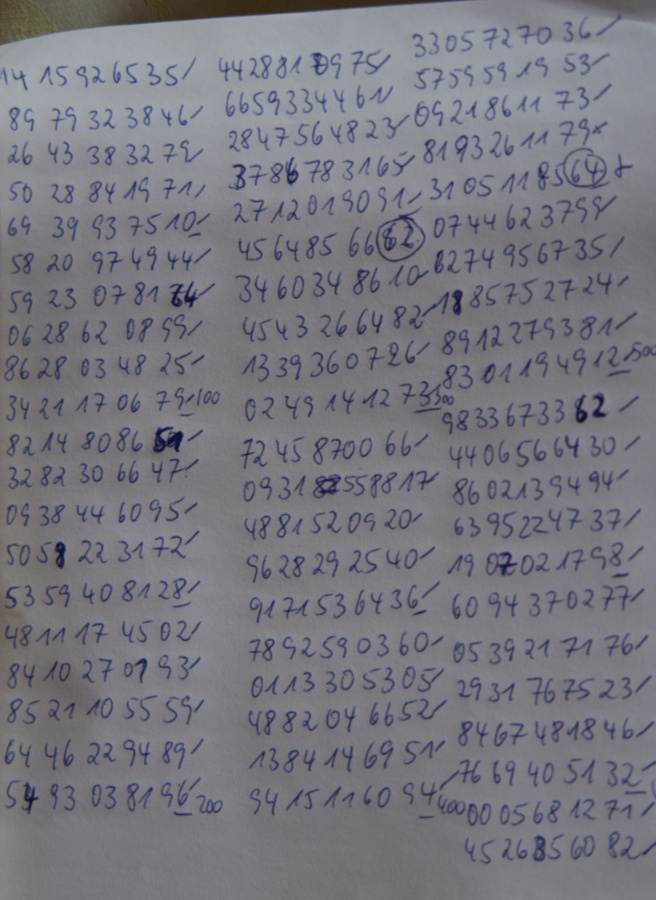 14 15 92 65 35/
89 79 32 38 46/
26 43 38 32 79/
50 28 84 19 71/
69 39 93 75 10/
58 20 97 49 44/
59 23 07 81 64
06 28 62 08 99/
86 28 03 48 25/
34 21 17 06 79/100
82 14 80 86 51/
32 82 30 66 47/
09 38 44 60 95/
50 58 22 31 72/
53 59 40 81 28/
48 11 17 45 02/
84 10 27 01 93/
85 21 10 55 59/
64 46 22 94 89/
54 93 03 81 96/200
44 28 81 09 75/
66 59 33 44 61/
28 47 56 48 23/
37 86 78 31 65/
27 12 01 90 91/
45 64 85 66 62
34 60 34 86 10/
45 43 26 64 82/
13 39 36 07 26/
02 49 14 12 73/300
72 45 87 00 66/
09 31 55 88 17/
48 81 52 09 20/
96 28 29 25 40/
91 71 53 64 36/
78 92 59 03 60/
01 13 30 53 05/
48 82 04 66 52/
13 84 14 69 51/
94 15 11 60 94/400
33 05 72 70 36/
57 59 59 19 53/
09 21 86 11 73/
81 93 26 11 79/
31 05 11 85 64
07 44 62 37 99/
62 74 95 67 35/
18 85 75 27 24/
89 12 27 93 81/
83 01 19 49 12/500
98 33 67 33 62/
44 06 56 64 30/
86 02 13 94 94/
63 95 22 47 37/
19 07 02 17 98/
60 94 37 02 77/
05 39 21 71 76/
29 31 76 75 23/
84 67 48 18 46/
76 69 40 51 32/
00 05 68 12 71/
45 26 35 60 82/